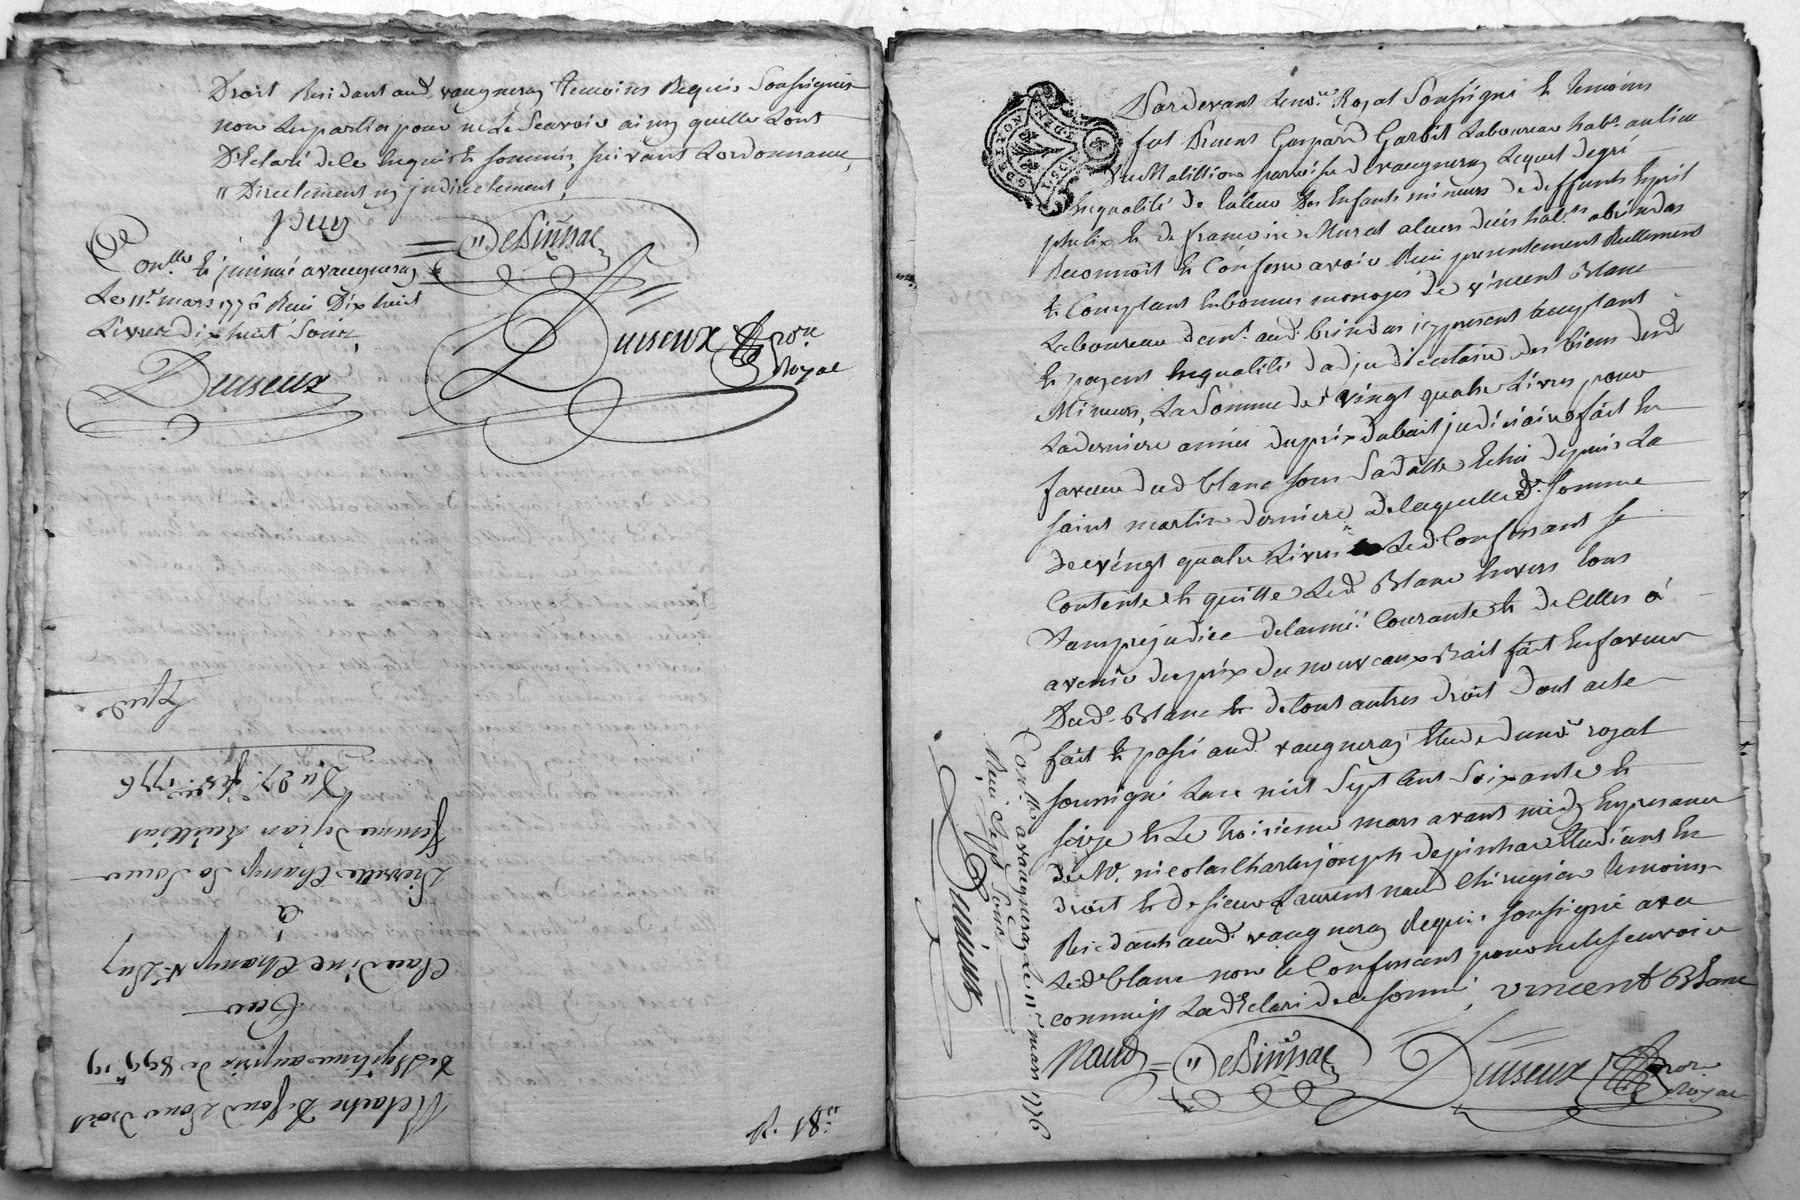 Droit Residant aud. vaugneray temoins Requis Soussignés
non Les parties pour ne Le Scavoir ainsy quelles Lont
Declaré de ce Enquis et sommés, suivant Lordonnance,
Directement ny jndirectement,
DeSinssac
Con.lle et jnsinué a vaugneray
Le 11e mars 1776 Reçu Dix huit
Livres dix huit Sous
Duiseux
Duiseux
Royal
Du 27. fev.er 1776
femme de jean
Claudine Champ
à
Par devant Le no.re Royal Soussigné et temoins
fut Present Gaspard Garbit Laboureur hab.t au lieu
du Matillion parroisse de vaugneray Lequel degré
En qualité de tuteur Des Enfants mineurs de deffunts Esprit
phelix et de francoise Murat a leurs deces hab.ts a brindas
Reconnoit et Confesse avoir Reçu presentement Reellement
et Comptant En bonnes monoyes de vincent Blanc
Laboureur dem.t aud. brindas icy present acceptant
et payent En qualité dadjudicataire des biens desd.
Mineurs, La Somme de vingt quatre Livres pour
La derniere année du prix du bail judiciaire fait En
faveur dud. blanc sous Sa datte Echu depuis La
saint martin derniere de laquelle d. somme
de vingt quatre Livres Led. Confessant se
Contente et quitte Led. Blanc Envers tous
sans prejudice de lannée Courante et de Celles à
avenir du prix du nouveaux Bail fait En faveur
Dud. Blanc et de tout autres droit dont acte
fait et passé aud. vaugneray Etude du no.re royal
soussigné Lan mil Sept Cent Soixante et
seize et Le troisieme mars avant midy En presence
de M. nicolas Charles joseph Etudiant En
droit et de sieur Laurent naud Chirugien temoins
Residants aud. vaugneray Requis soussigné avec
Led. blanc non le Confessant pour ne le scavoir
comme il La déclaré de ce sommé, vincent Blanc
Naud DeSinssac Duiseux
Royal
Con.lle a vaugneray Le 11e mars 1776
Reçu Sept Sous
Duiseux